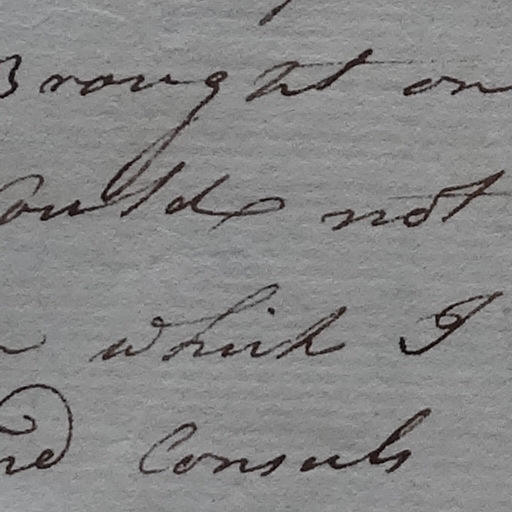 Brought on
Could not
which I
and Consuls